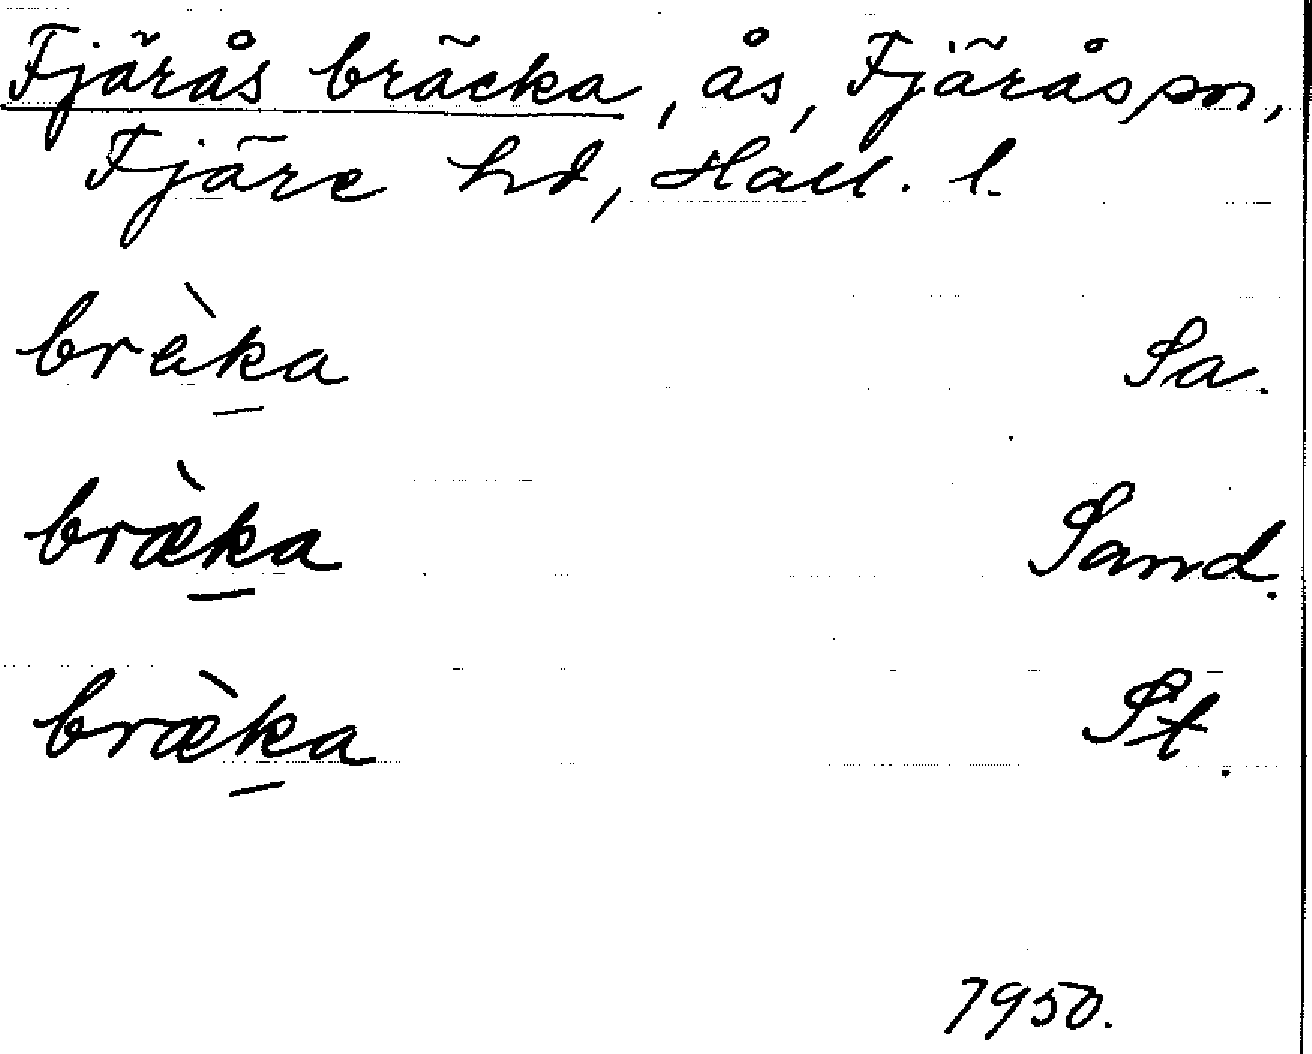 Fjärås bräcka, ås, Fjärås sn,
Fjäre hd, Hall. l.
brὰka Sa.
bræ̀ka Sand.
bræ̀ka St.
1950.